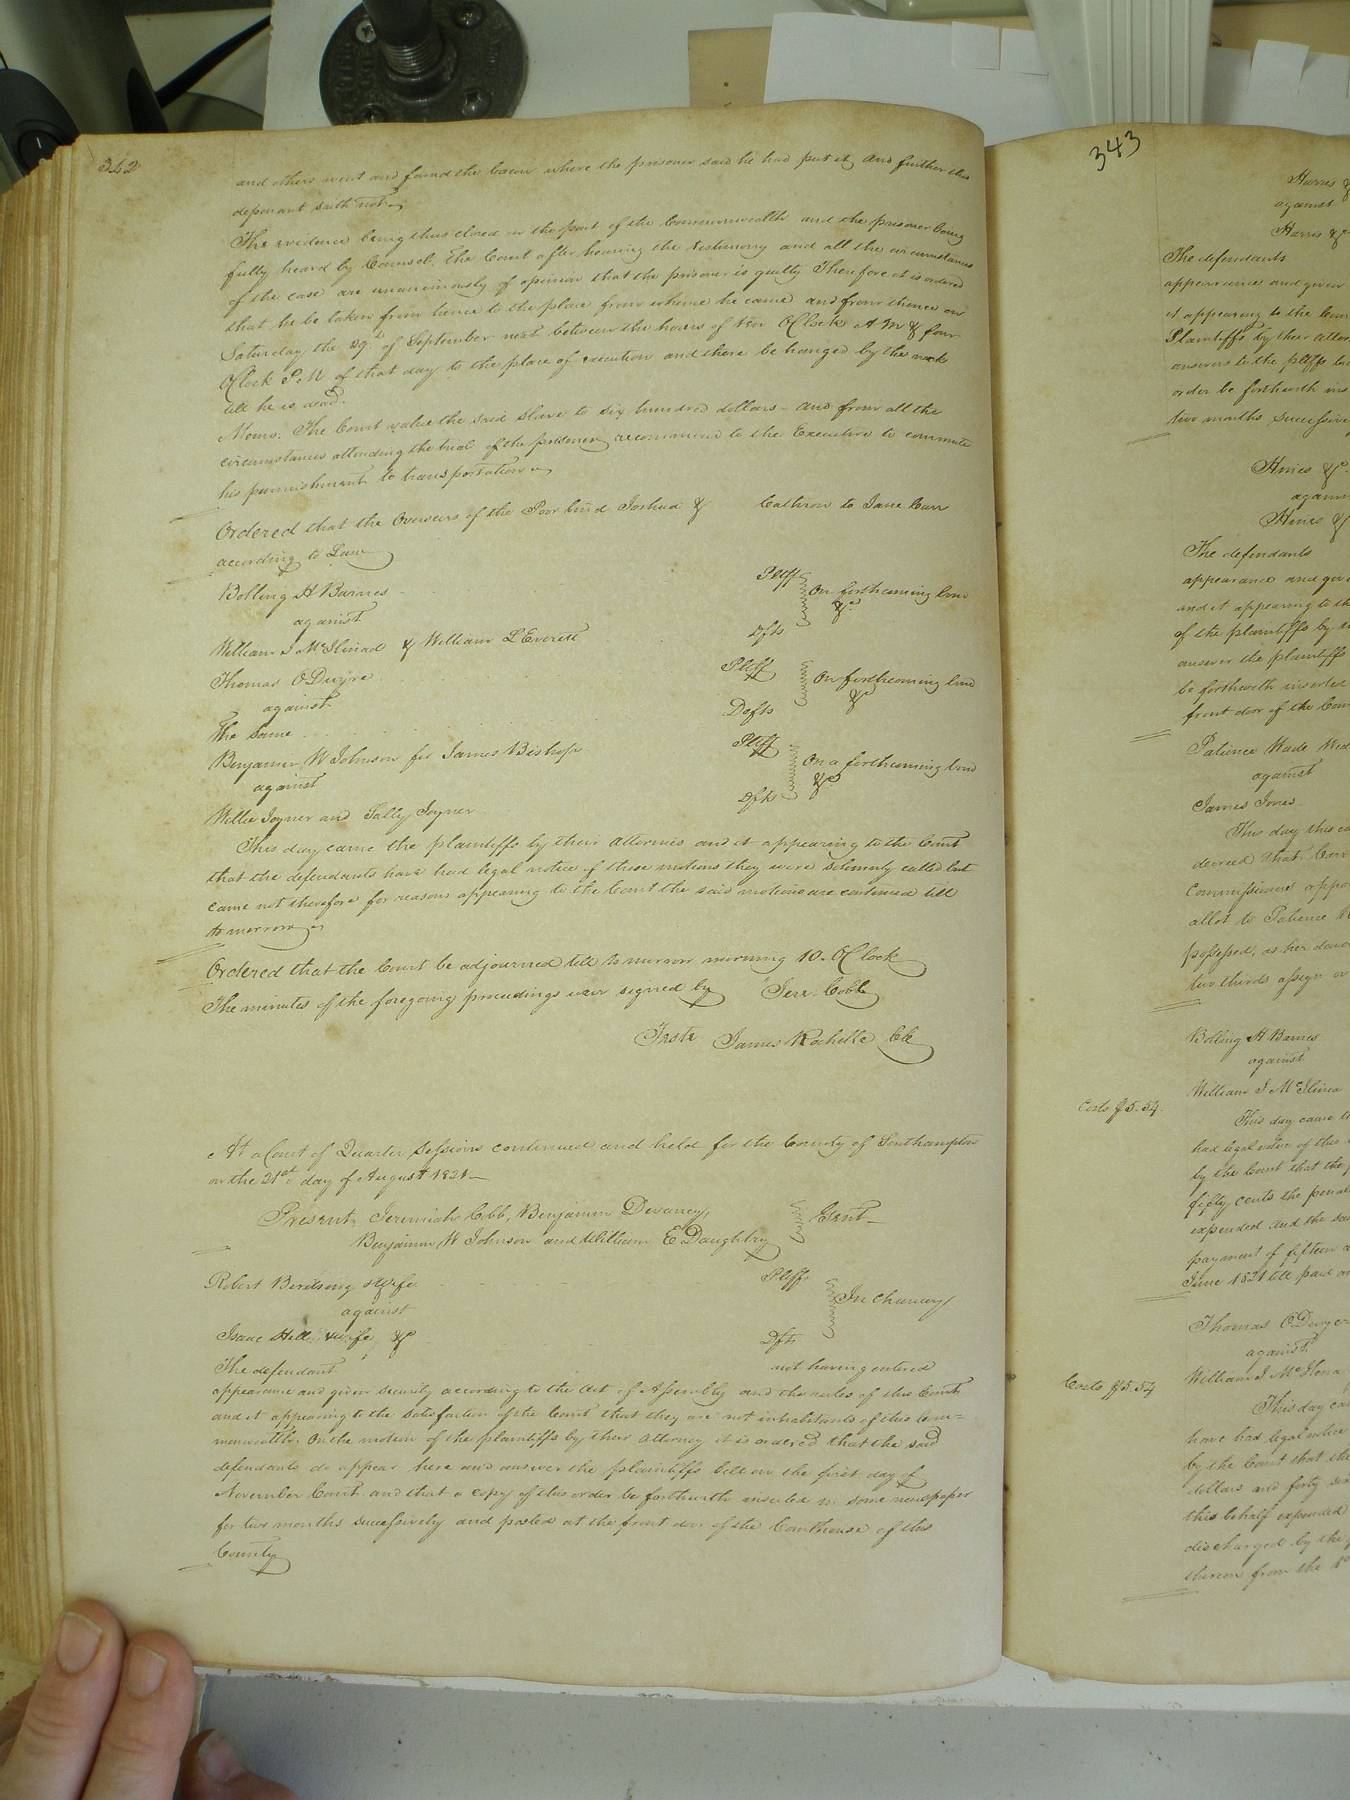 342
and others went and found the bacon where the prisoner said he had put it, and further this
deponant saith not
The evidence being thus closed on the part of the Commonwealth and the prisoner being
fully heard by Counsel. The Court after hearing the testimony and all the circumstances
of the case are unanimously of opinion that the prisoner is guilty Therefore it is ordered
that he be taken from hence to the place from whence he came and from thence on
Saturday the 29th of September next between the hours of ten OClock A M & four
OClock P.M of that day to the place of execution and there be hanged by the neck
till he is dead.
Memo. The Court value the said Slave to six hundred dollars - and from all the
circumstances attending the trial of the prisoner, recommend to the Executive to commute
his punnishment to transportation
Ordered that the Overseers of the Poor bind Joshua & Cathron to Jane Carr
according to Law
Bolling H Barnes Pltff
against On forthcoming bond &c.
William J McIlwinad & William L Everett Dfts
Thomas ODwyre Pltff
against On forthcoming bond &c
The Same Defts
Benjamin W Johnson for James Bishop Pltff
against On a forthcoming bond &c
Willie Joyner and Sally Joyner Dfts
This day came the plaintiffs by their Attornies and it appearing to the Court
that the defendants have had legal notice of these motions they were solemnly called but
came not therefore for reasons appearing to the Court the said motions are continued till
to morrow
Ordered that the Court be adjourned till to morrow morning 10. OClock
The minutes of the foregoing proceedings were signed by Jere Cobb
Teste James Rochelle CC
At a Court of Quarter Sessions continued and held for the County of Southampton
on the 21st day of August 1821
Present, Jeremiah Cobb, Benjamin Devaney, Gent
Benjamin W Johnson and William E Daughtry
Robert Birdsong & wife Pltffs
against In Chancery
Isaac Hill & wife &c Dfts
The defendant not having entered
appearance and given security according to the act of Assembly and the rules of this Court
and it appearing to the satisfaction of the Court that they are not inhabitants of this Com=
monwealth. On the motion of the plaintiffs by their attorney it is ordered that the said
defendants do appear here and answer the plaintiffs bill on the first day of
November Court and that a copy of this order be forthwith inserted in some newspaper
for two months successively and posted at the front door of the Courthouse of this
County
343
Harris &
against
Harris &c
The defendants
appearance and given
it appearing to the
Plaintiffs by their
answers to the pltffs
order be forthwith
two months successive
Hines &c.
against
Hines &
The defendants
appearance and
and it appearing to
of the plaintiffs by
answer the plaintiffs
be forthwith inserted
front door of the
Patience Wade
against
James Jones
This day this
decreed that
Commissioners
allot to Patience
possessed, as her
two thirds assign
Bolling H Barnes
against
William J
Costs $5.54.
This day came
had legal notice of this
by the Court that the
fifty cents the
expended and the
payment of fifteen
June 1821 till paid
Thomas ODwyer
against
Costs $5.54 William J
This day
have had legal notice
by the Court that the
dollars and forty
this behalf expended
discharged by the
thereon from the